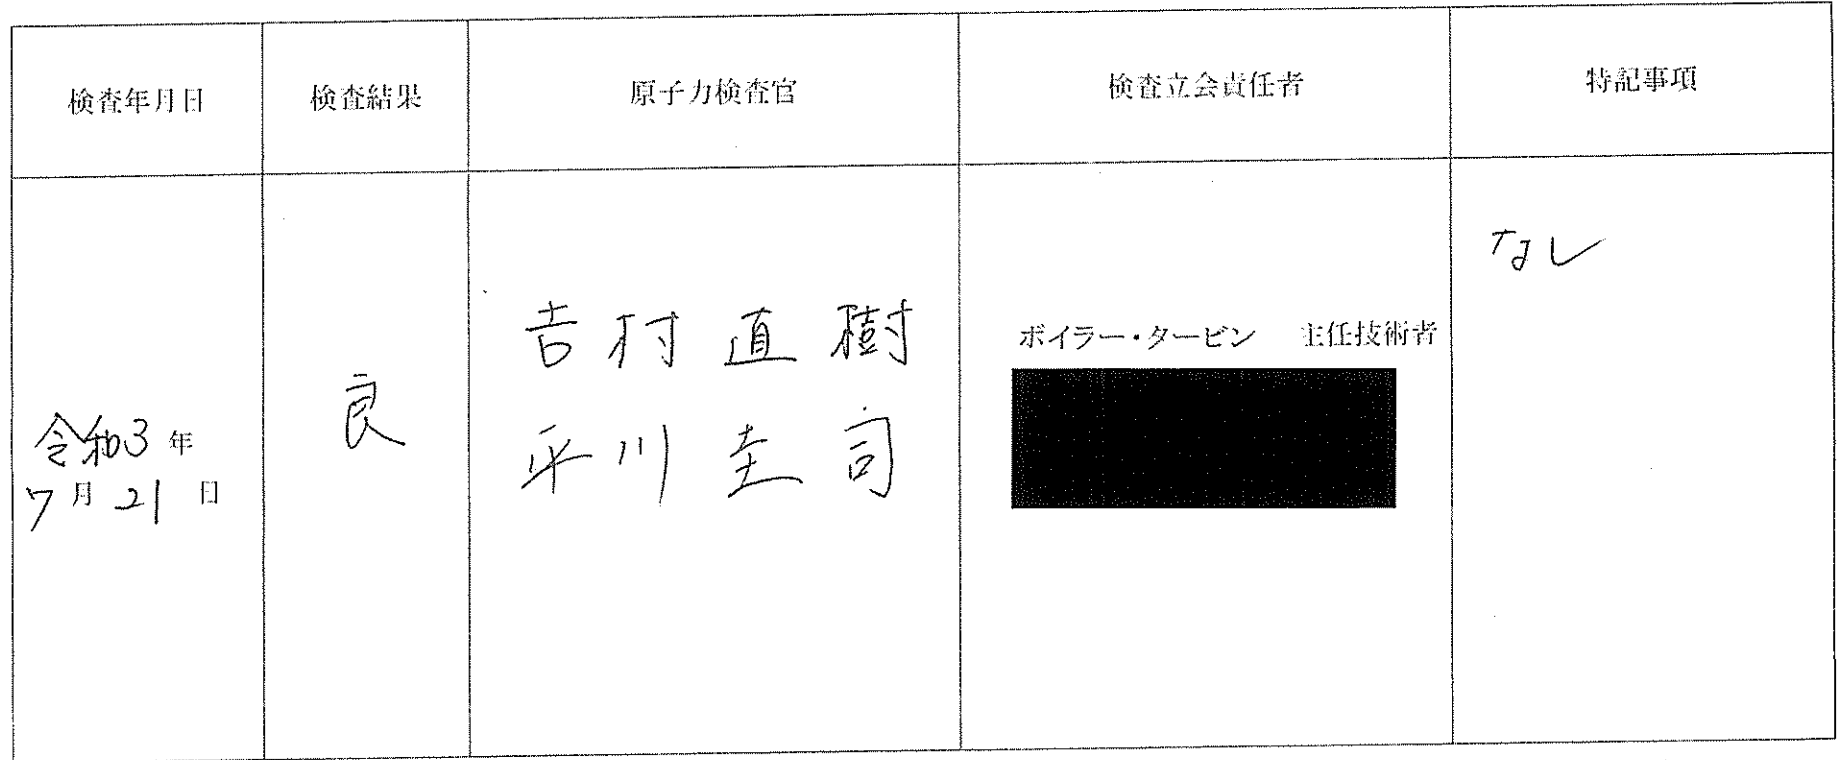 検査年月日 検査結果 原子力検査官 検査立会責任者 特記事項
令和3年
7月21日
良
吉村直樹
平川圭司
ボイラー・タービン 主任技術者
なし